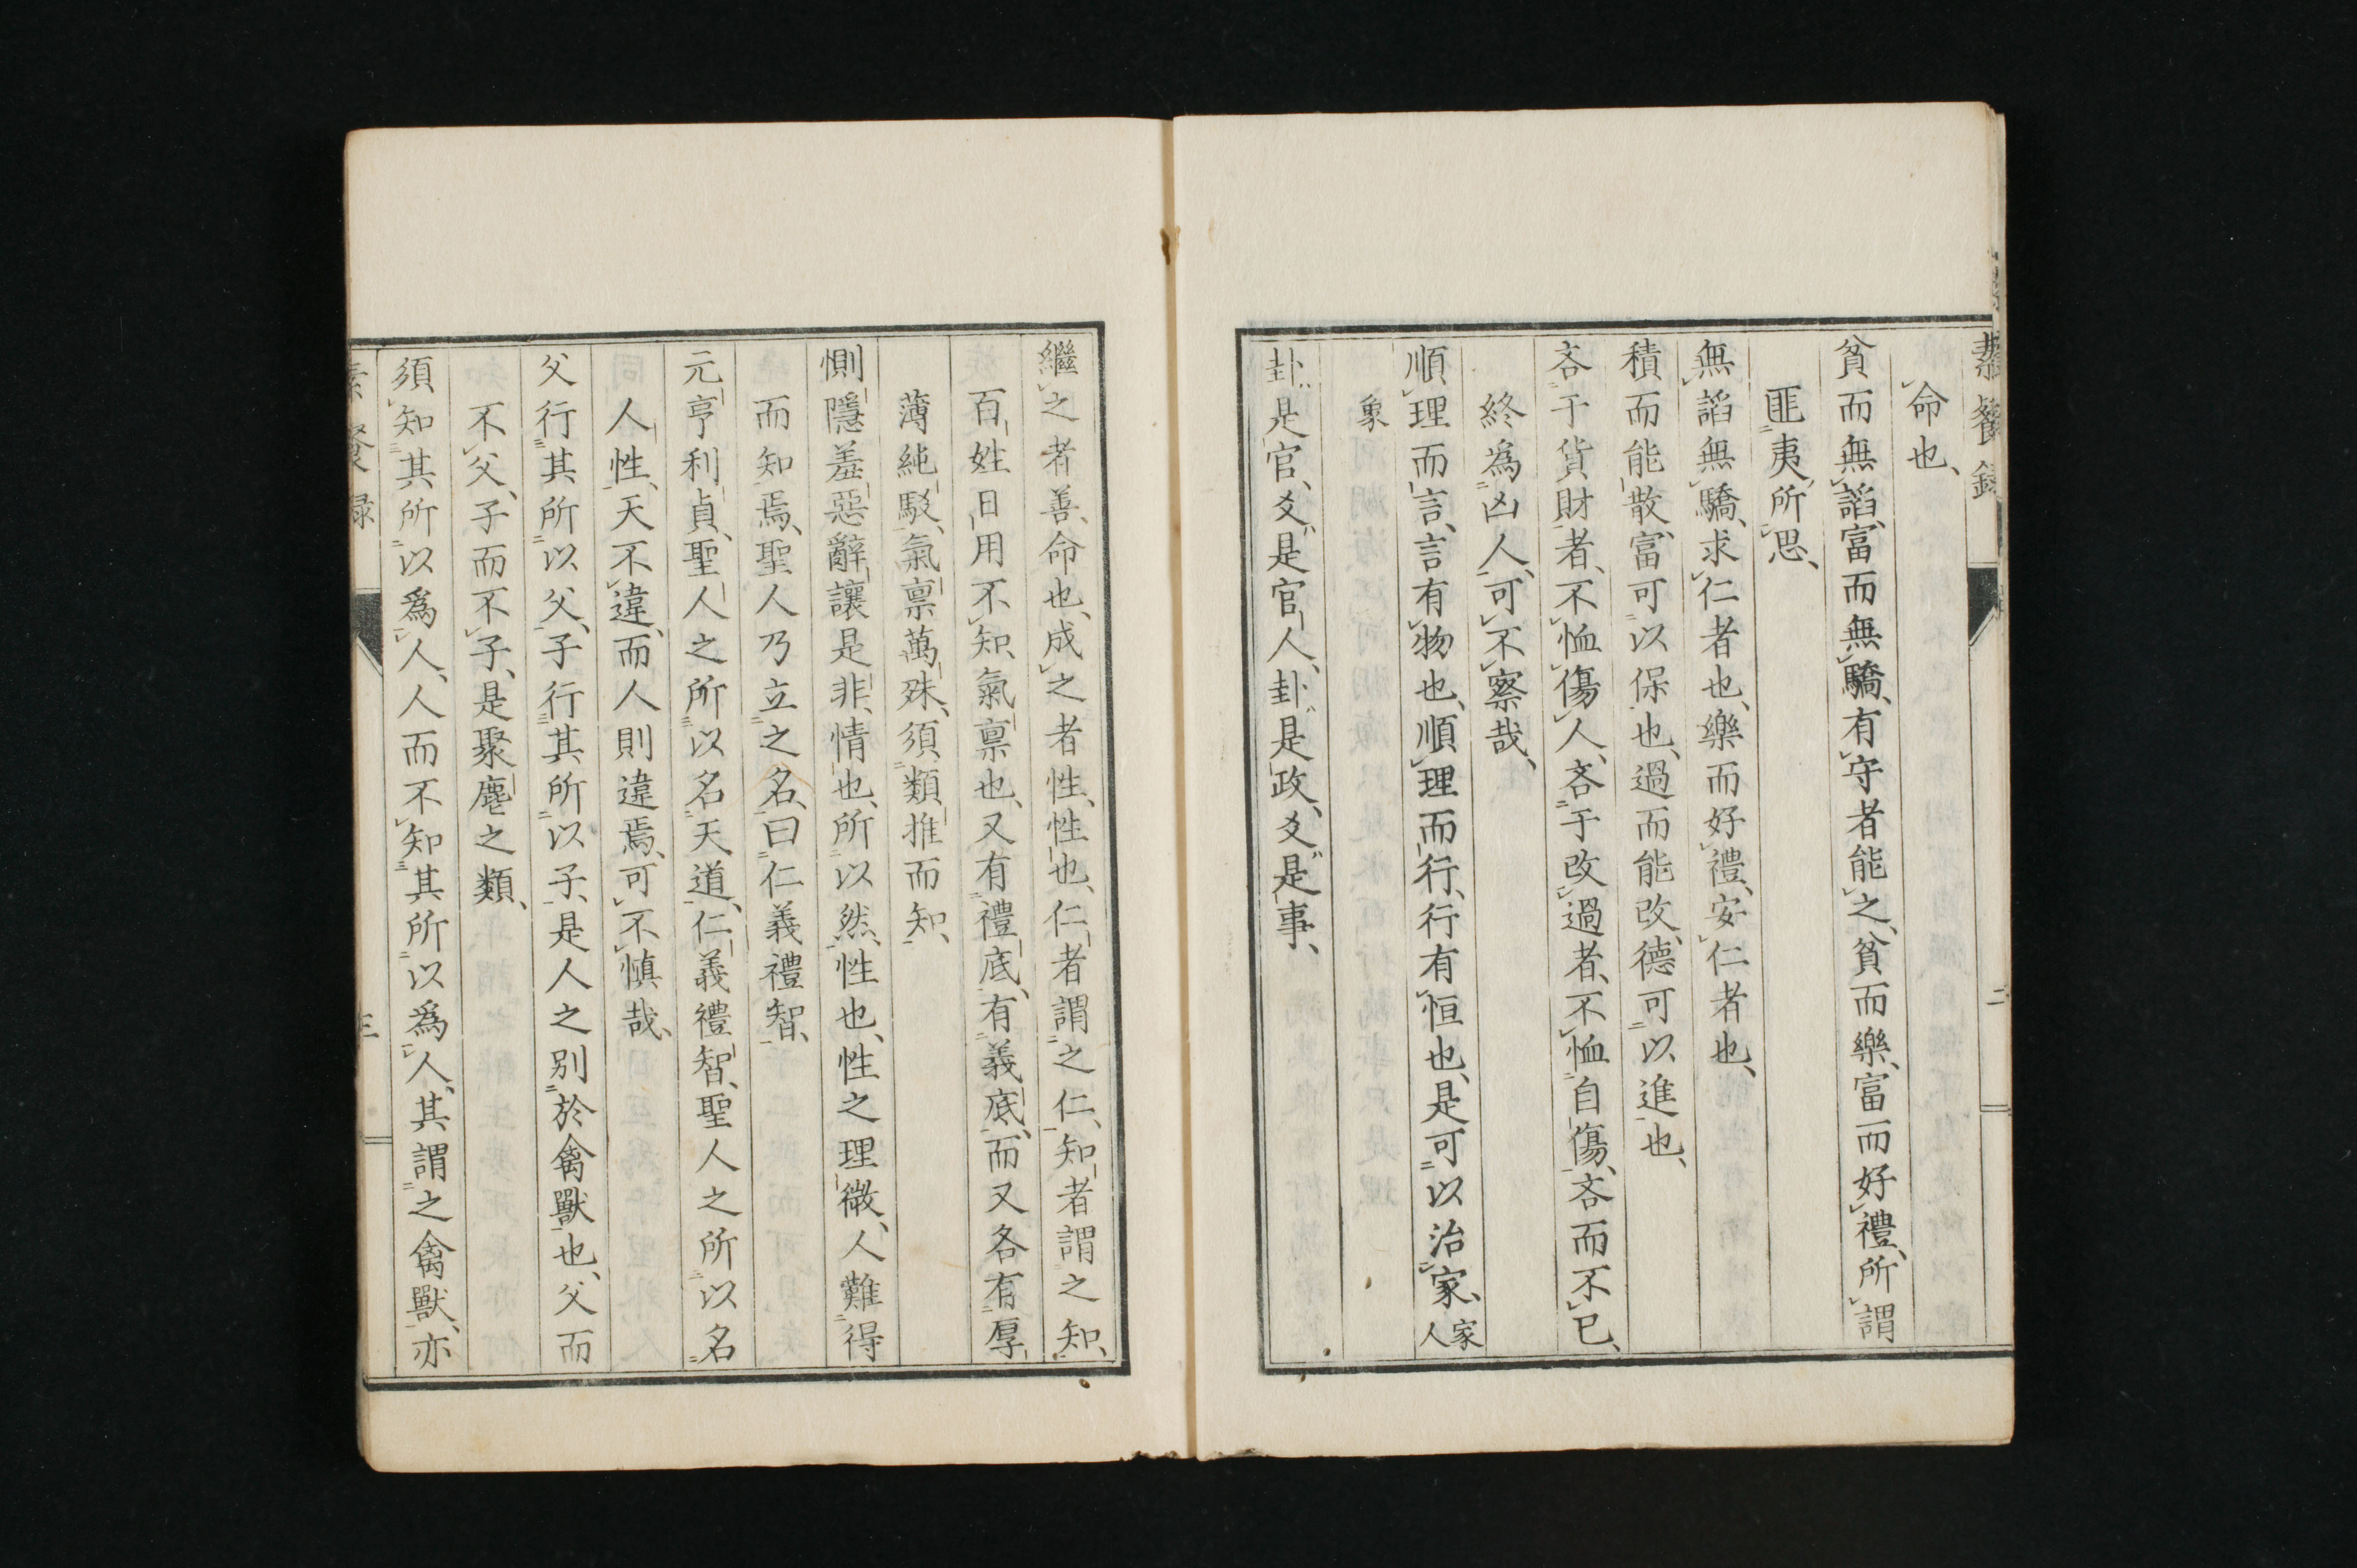 素餐錄
二
命也、
貧而無諂、富而無驕、有守者能之、貧而樂、富而好禮、所謂
匪夷所思、
無諂無驕、求仁者也、樂而好禮、安仁者也、
積而能散、富可以保也、過而能改、德可以進也、
吝于貨財者、不恤傷人、吝于改過者、不恤自傷、吝而不已、
終爲凶人、可不察哉、
順理而言、言有物也、順理而行、行有恒也、是可以治家、家人
象
卦是官、爻是官人、卦是政、爻是事、
繼之者善、命也、成之者性、性也、仁者謂之仁、知者謂之知、
百姓日用不知、氣禀也、又有禮底、有義底、而又各有厚
薄純駁、氣禀萬殊、須類推而知、
惻隱羞惡辭讓是非、情也、所以然、性也、性之理微、人難得
而知焉、聖人乃立之名、曰仁義禮智、
元亨利貞、聖人之所以名天道、仁義禮智、聖人之所以名
人性、天不違、而人則違焉、可不愼哉、
父行其所以父、子行其所以子、是人之別於禽獸也、父而
不父、子而不子、是聚麀之類、
須知其所以爲人、人而不知其所以爲人、其謂之禽獸、亦
素餐錄
三